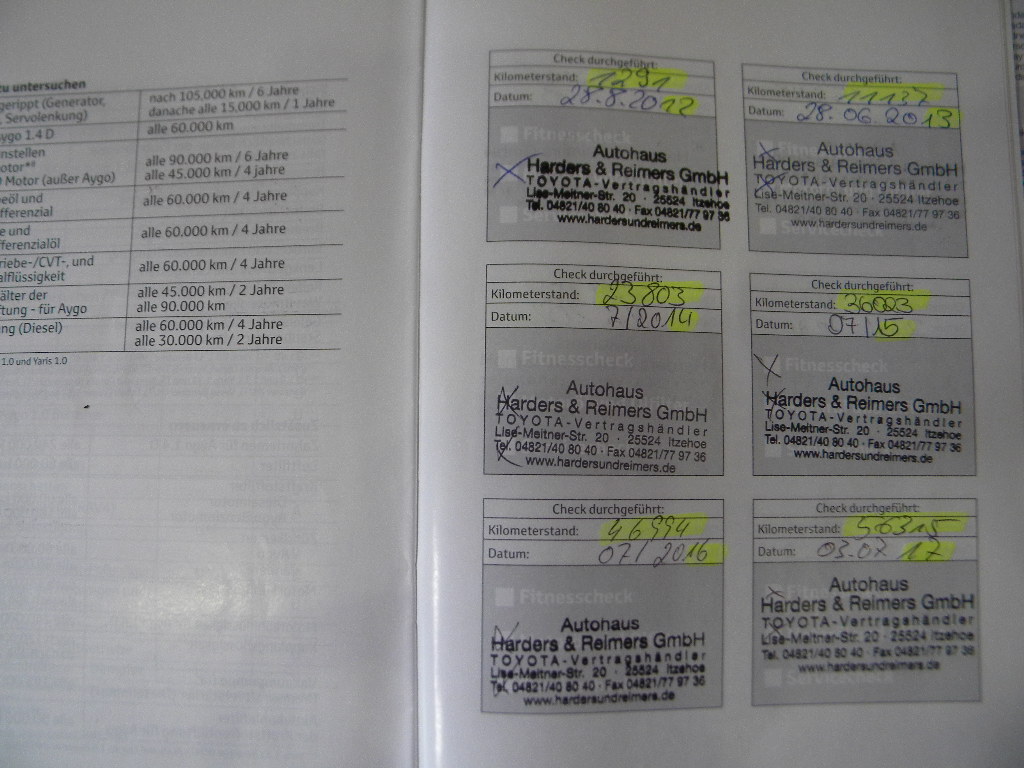 zu untersuchen
gerippt (Generator,
, Servolenkung)
nach 105.000 km / 6 Jahre
danache alle 15.000 km / 1 Jahre
Aygo 1.4 D
alle 60.000 km
nstellen
otor*²
Motor (außer Aygo)
alle 90.000 km / 6 Jahre
alle 45.000 km / 4 jahre
eöl und
fferenzial
alle 60.000 km / 4 Jahre
e und
fferenzialöl
alle 60.000 km / 4 Jahre
riebe-/CVT-, und
alflüssigkeit
alle 60.000 km / 4 Jahre
älter der
ftung - für Aygo
alle 45.000 km / 2 Jahre
alle 90.000 km
ng (Diesel)
alle 60.000 km / 4 Jahre
alle 30.000 km / 2 Jahre
1.0 und Yaris 1.0
Check durchgeführt:
Kilometerstand: 1291
Datum: 28.8.2012
Fitnesscheck
Autohaus
Harders & Reimers GmbH
TOYOTA-Vertragshändler
Lise-Meitner-Str. 20 · 25524 Itzehoe
Tel. 04821/40 80 40 · Fax 04821/77 97 36
www.hardersundreimers.de
Check durchgeführt:
Kilometerstand: 11132
Datum: 28.06.2013
Autohaus
Harders & Reimers GmbH
TOYOTA-Vertragshändler
Lise-Meitner-Str. 20 · 25524 Itzehoe
Tel. 04821/40 80 40 · Fax 04821/77 97 36
www.hardersundreimers.de
Servicecheck
Check durchgeführt:
Kilometerstand: 23803
Datum: 7/2014
Fitnesscheck
Autohaus
Harders & Reimers GmbH
TOYOTA-Vertragshändler
Lise-Meitner-Str. 20 · 25524 Itzehoe
Tel. 04821/40 80 40 · Fax 04821/77 97 36
www.hardersundreimers.de
Check durchgeführt:
Kilometerstand: 36023
Datum: 07/15
Fitnesscheck
Autohaus
Harders & Reimers GmbH
TOYOTA-Vertragshändler
Lise-Meitner-Str. 20 · 25524 Itzehoe
Tel. 04821/40 80 40 · Fax 04821/77 97 36
www.hardersundreimers.de
Check durchgeführt:
Kilometerstand: 46994
Datum: 07/2016
Fitnesscheck
Autohaus
Harders & Reimers GmbH
TOYOTA-Vertragshändler
Lise-Meitner-Str. 20 · 25524 Itzehoe
Tel. 04821/40 80 40 · Fax 04821/77 97 36
www.hardersundreimers.de
Check durchgeführt:
Kilometerstand: 56315
Datum: 03.07 17
Autohaus
Harders & Reimers GmbH
TOYOTA-Vertragshändler
Lise-Meitner-Str. 20 · 25524 Itzehoe
Tel. 04821/40 80 40 · Fax 04821/77 97 36
www.hardersundreimers.de